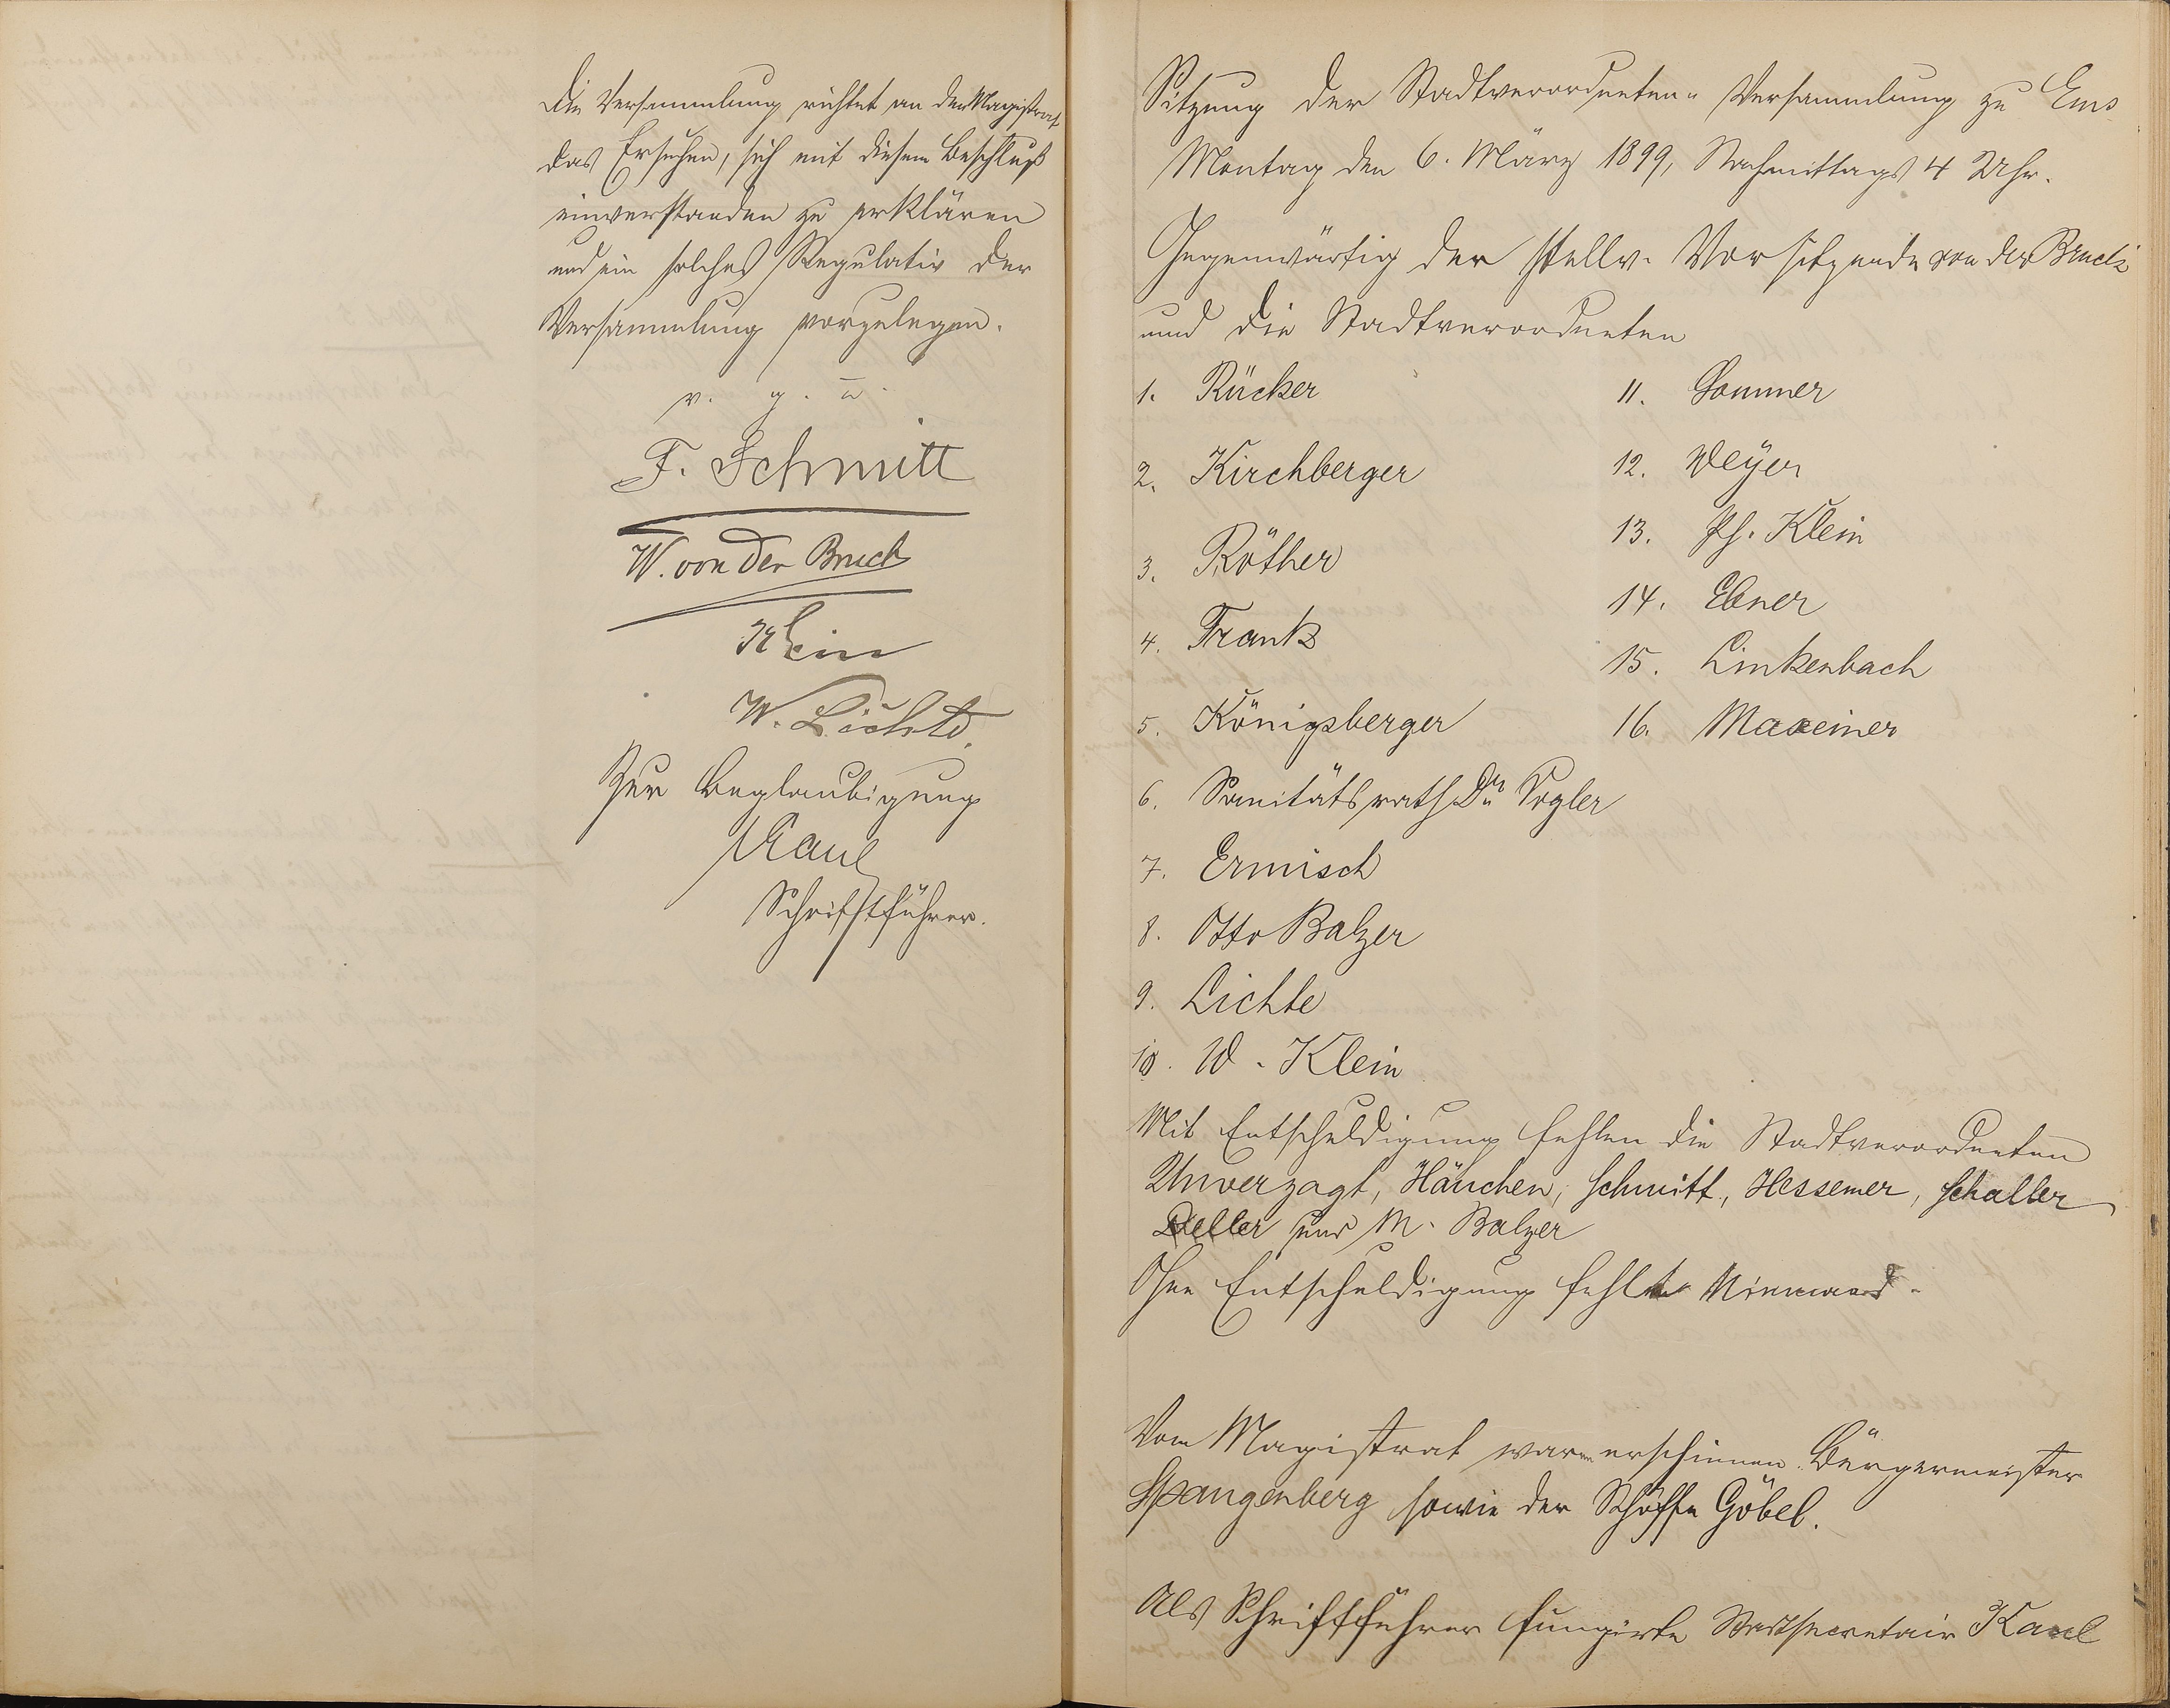 Die Versammlung richtet an den Magistrat
das Ersuchen, sich mit diesem Beschluß
einverstanden zu erklären
und ein solches Regulativ der
Versammlung vorzulegen.
v. g. u.
F. Schmitt
W. von der Bruck
Klein
W. Lichte.
Zur Beglaubigung
Kaul
Schriftführer.
Sitzung der Stadtverordneten-Versammlung zu Ems
Montag den 6. März 1899, Nachmittags 4 Uhr.
Gegenwärtig der stellv. Vorsitzende von der Bruck
und die Stadtverordneten
1. Rücker
2. Kirchberger
3. Röther
4. Frank
5. Königsberger
6. Sanitätsrath Dr. Vogler
7. Ermisch
8. Otto Balzer
9. Lichte
10. W. Klein
11. Sommer
12. Weyer
13. Ph. Klein
14. Ebner
15. Linkenbach
16. Maxeiner
Mit Entschuldigung fehlen die Stadtverordneten
Unverzagt, Häuchen, Schmitt, Hessemer, Schaller
und M. Balzer
Ohne Entschuldigung fehlte Niemand.
Vom Magistrat waren erschienen Bürgermeister
Spangenberg sowie der Schöffe Göbel.
Als Schriftführer fungirte Stadtsecretair Kaul